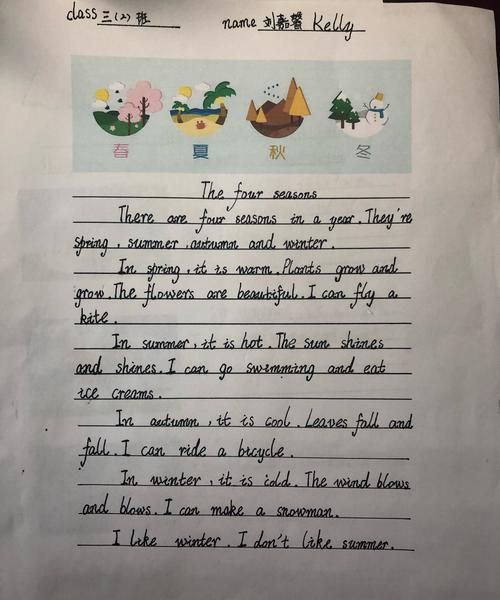 class 三(2)班 name 刘嘉馨 Kelly
春 夏 秋 冬
The four seasons
There are four seasons in a year. They're
spring, summer, autumn and winter.
In spring, it is warm. Plants grow and
grow. The flowers are beautiful. I can fly a
kite.
In summer, it is hot. The sun shines
and shines. I can go swimming and eat
ice creams.
In autumn, it is cool. Leaves fall and
fall. I can ride a bicycle.
In winter, it is cold. The wind blows
and blows. I can make a snowman.
I like winter. I don't like summer.